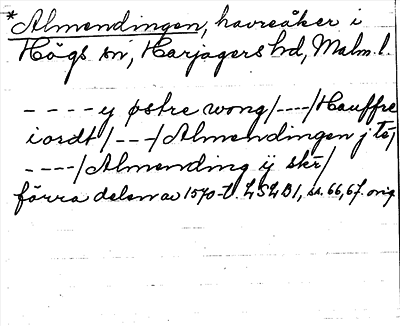 *Almendingen, havreåker i
Högs sn, Harjagers hd, Malm. l.
- - - - y østre wong/---/Hauffre
iordt/---/Almendingen j tó,
- - - -/Almending ij skr/
förra delen av 1570-t. LSLB1, ss. 66, 67. orig.